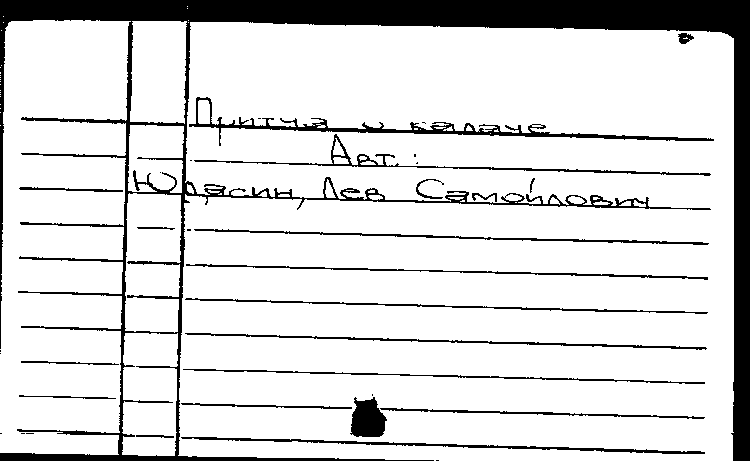 Притча о калаче
Авт.:
Юдасин, Лев Самойлович